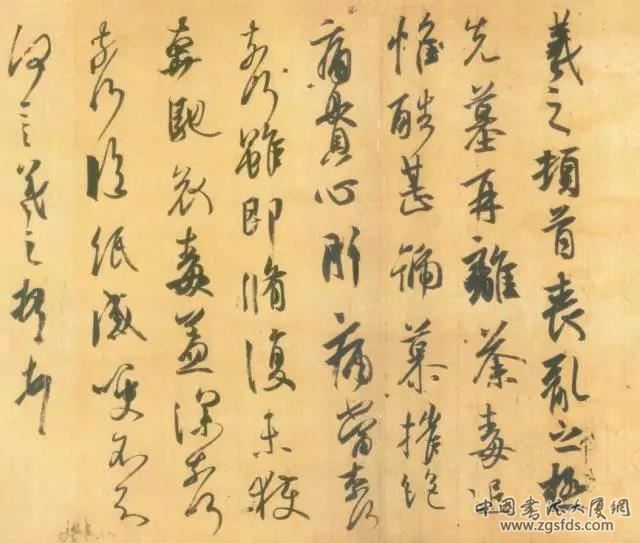 羲之頓首喪亂之極
先墓再離荼毒追
惟酷甚號慕摧絕
痛貫心肝痛當奈何
奈何雖即脩復未獲
奔馳哀毒益深奈何
奈何臨紙感哽不知
何言羲之頓首
中国書法大厦網
www.zgsfds.com